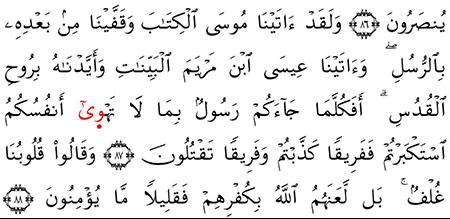 يُنصَرُونَ ﴿٨٦﴾ وَلَقَدْ ءَاتَيْنَا مُوسَى ٱلْكِتَٰبَ وَقَفَّيْنَا مِنۢ بَعْدِهِۦ
بِٱلرُّسُلِ ۖ وَءَاتَيْنَا عِيسَى ٱبْنَ مَرْيَمَ ٱلْبَيِّنَٰتِ وَأَيَّدْنَٰهُ بِرُوحِ
ٱلْقُدُسِ ۗ أَفَكُلَّمَا جَآءَكُمْ رَسُولٌۢ بِمَا لَا تَهْوِىٰٓ أَنفُسُكُمُ
ٱسْتَكْبَرْتُمْ فَفَرِيقًا كَذَّبْتُمْ وَفَرِيقًا تَقْتُلُونَ ﴿٨٧﴾ وَقَالُوا۟ قُلُوبُنَا
غُلْفٌۢ ۚ بَل لَّعَنَهُمُ ٱللَّهُ بِكُفْرِهِمْ فَقَلِيلًا مَّا يُؤْمِنُونَ ﴿٨٨﴾